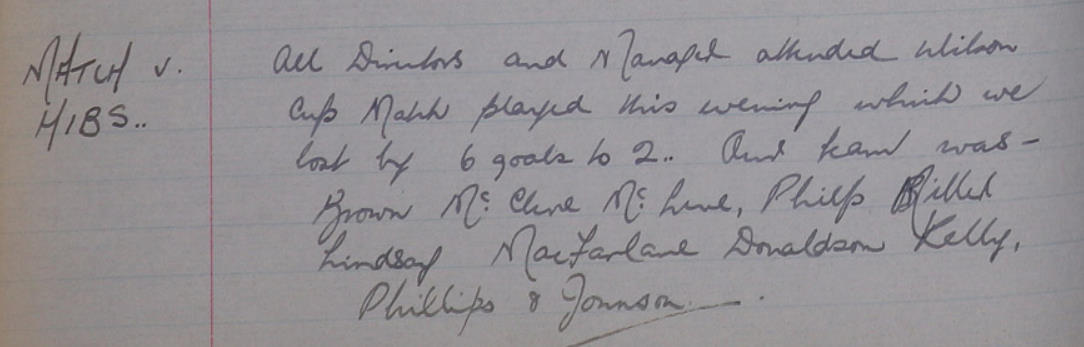 MATCH v.
HIBS..
All Directors and Manager attended Wilson
Cup Match played this evening which we
lost by 6 goals to 2.. Our team was -
Brown Mc. Clure Mc. Lure, Philp Miller
Lindsay MacFarlane Donaldson Kelly,
Phillips & Johnson.